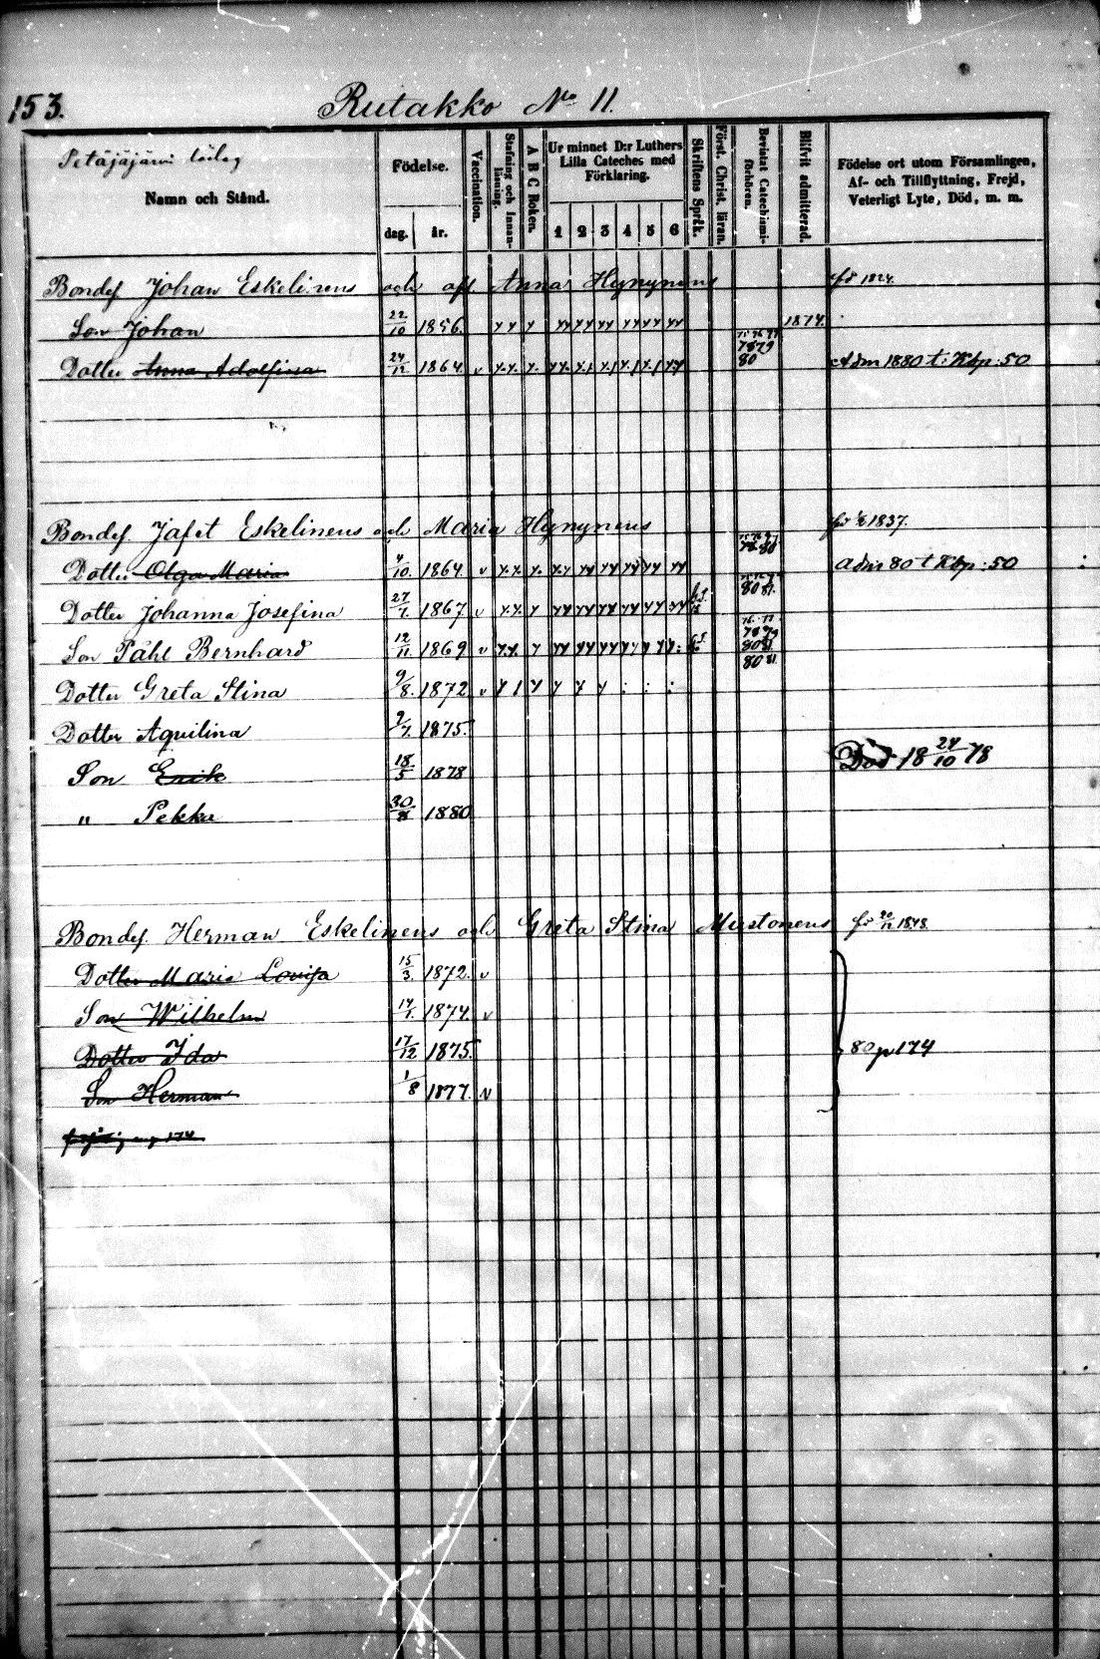 153.
Rutakko No 11.
Petäjäjärvi
Namn och Stånd.
Födelse.
dag. år.
Vaccination.
Stafning och Innanläsning.
A B C Boken.
Ur minnet D:r Luthers
Lilla Cateches med
Förklaring.
1 2 3 4 5 6
Skriftens Språk.
Först. Christ. läran.
Bevistat Catechismiförhören.
Blifvit admitterad.
Födelse ort utom Församlingen,
Af- och Tillflyttning, Frejd,
Veterligt Lyte, Död, m. m.
Bondef Johan Eskelinens och Anna Hynynens 1824.
Son Johan 22/10 1856. 1874.
Dotter Anna Adolfina 24/12 1864 v 78 79 80 Adm 1880 t. Kbp: 50
Bondef. Jafet Eskelinens och Maria Hynynens 1837.
Dotter Olga Maria 4/10. 1864 v adm 80 t Kbp: 50
Dotter Johanna Josefina 27/7. 1867 v 80 81.
Son Påhl Bernhard 12/11. 1869 v 78 79 80 81.
Dotter Greta Stina 9/8. 1872 v 80 81
Dotter Aquilina 9/7. 1875.
Son Erik 18/5 1878 Död 18 24/10 78
" Pekka 30/8 1880
Bondef. Herman Eskelinens och Greta Stina Mustonens 1848.
Dotter Maria Lovisa 15/3. 1872. v
Son Wilhelm 14/1. 1874. v
Dotter Ida 17/12 1875. 80 p 174
Son Herman 1/8 1877. v
174